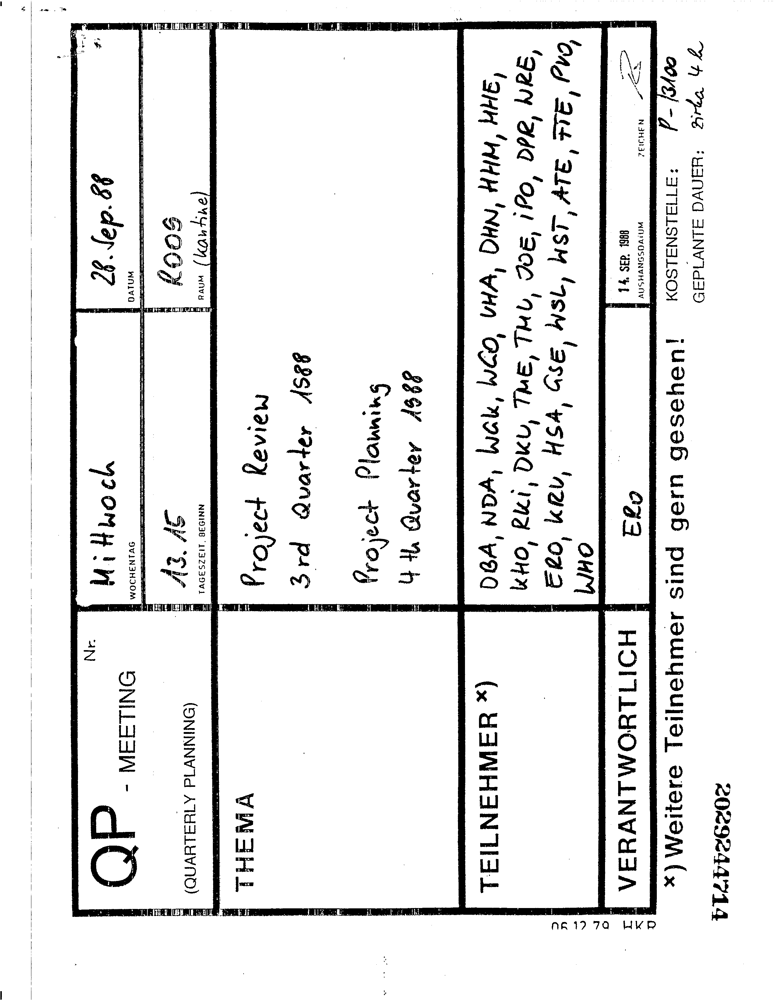 QP - MEETING
Nr.
(QUARTERLY PLANNING)
Mittwoch
WOCHENTAG
28. Sep. 88
DATUM
13.15
TAGESZEIT, BEGINN
ROOS
RAUM (Kantine)
THEMA
Project Review
3rd Quarter 1988
Project Planning
4th Quarter 1988
TEILNEHMER *)
DBA, NDA, WGK, WGO, UHA, DHN, HHM, HHE,
KHO, RKI, DKU, TME, THU, JOE, IPO, DPR, WRE,
ERO, KRU, HSA, GSE, WSL, WST, ATE, FTE, PVO,
WHO
VERANTWORTLICH
ERO
14. SEP. 1988
AUSHANGSDATUM
ZEICHEN
*) Weitere Teilnehmer sind gern gesehen!
KOSTENSTELLE: P-13100
GEPLANTE DAUER: zirka 4 h
2029244714
06.12.79 HKP